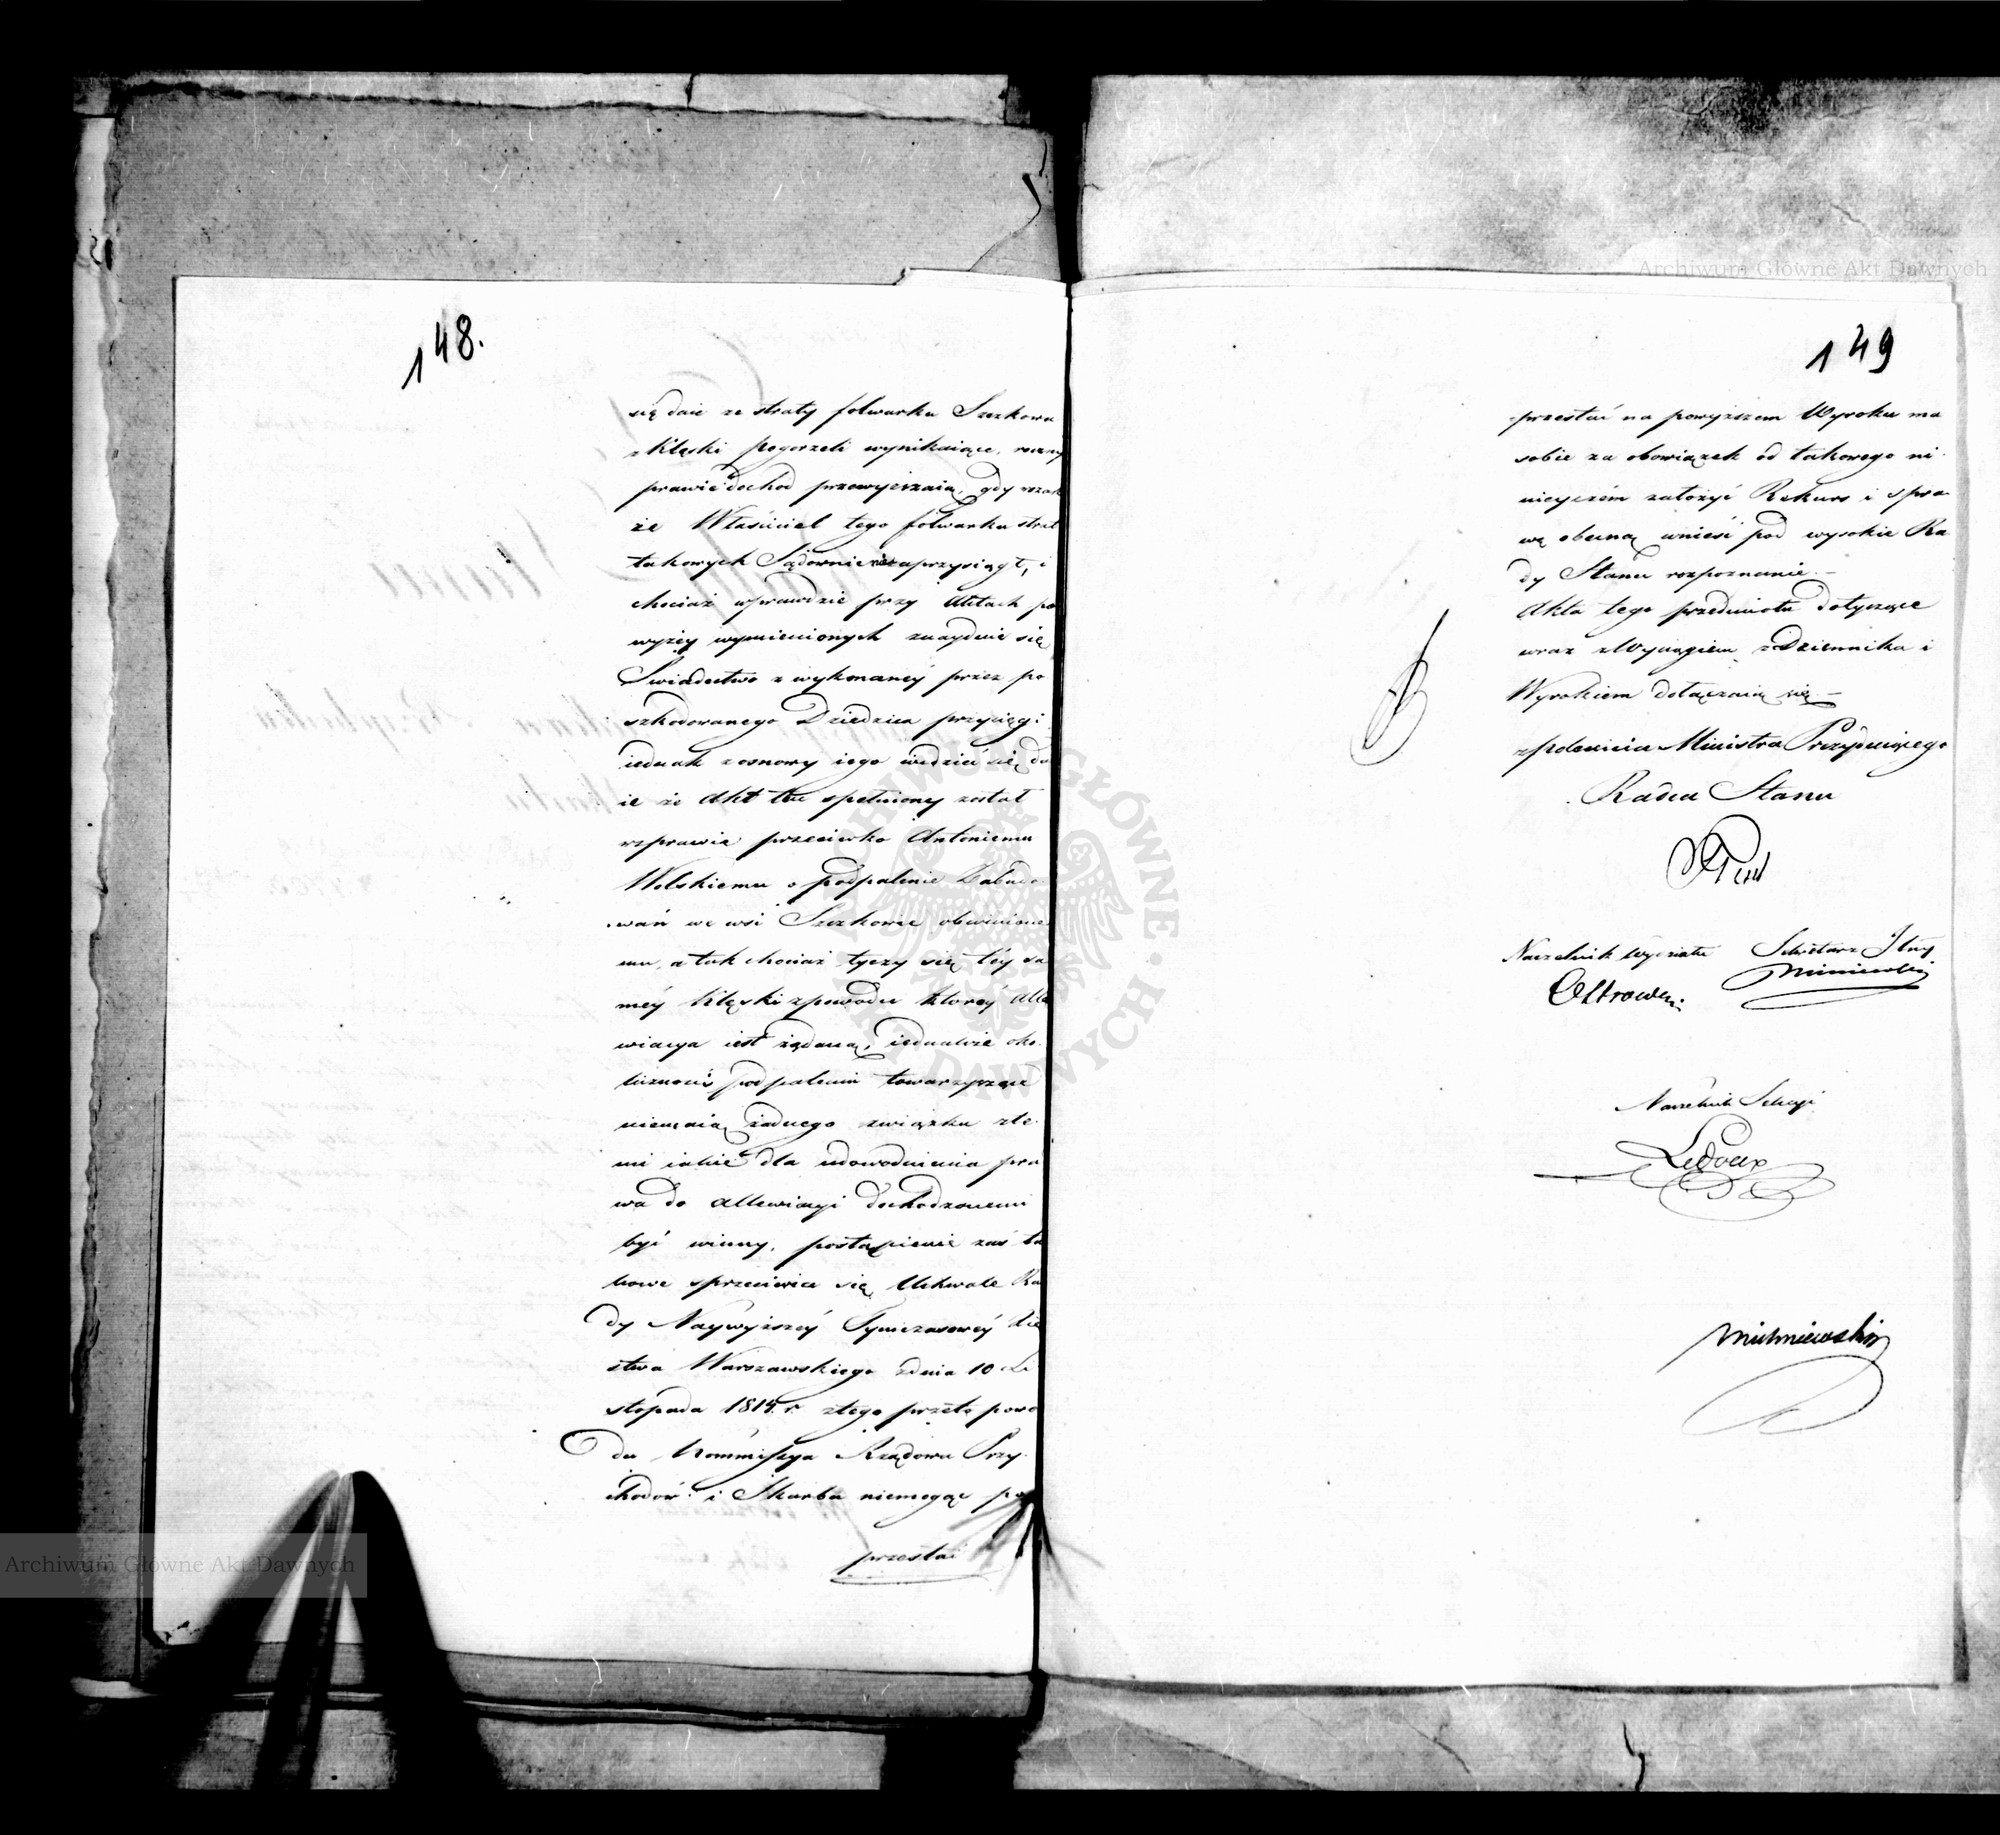 148.
się daie ze straty folwarku Szczkowa
z klęski pogorzeli wynikaiące, roczny
prawie dochod przewyższaią, gdy
że Właściciel tego folwarku strat
takowych Sądownie nie zaprzysiągł, i
chociaż wprawdzie przy Aktach po
wyżey wymienionych znayduie się
Swiadectwo z wykonaney przez po
szkodowanego Dziedzica przysięgi
iednak z osnowy iego widzieć się da
ie że Akt ten spełniony został
w sprawie przeciwko Antoniemu
Wolskiemu o podpalenie Zabudo
wań we wsi Szczkowie obwinione
mu, a tak chociaż tyczy się tey sa
mey klęski z powodu ktorey Alle
wiacya iest żądaną, iednakże oko
liczności podpaleniu towarzyszące
niemaią żadnego związku z te
mi iakie dla udowodnienia pra
wa do allewiacyi dochodzonemi
być winny, postąpienie zaś ta
kowe sprzeciwia się Uchwale Ra
dy Naywyższey Tymczasowey Xię
stwa Warszawskiego z dnia 10 Li
stopada 1814 r. z tego przeto powo
du Kommissya Rządowa Przy
chodów i Skarbu niemogąc po
przestać
149
przestać na powyższem Wyroku ma
sobie za obowiązek od takowego ni
nieyszém założyć Rekurs i spra
wę obecną wnieść pod wysokie Ra
dy Stanu rozpoznanie.—
Akta tego przedmiotu dotyczące
wraz z Wyciągiem z Dziennika i
Wyrokiem dołączaią się—
z polecenia Ministra Prezyduiącego
Radca Stanu
Naczelnik Wydziału Sekretarz Jlny
Naczelnik Sekcyi
Ledoux
Archiwum Główne Akt Dawnych
Archiwum Główne Akt Dawnych
ARCHIWUM GŁÓWNE AKT DAWNYCH